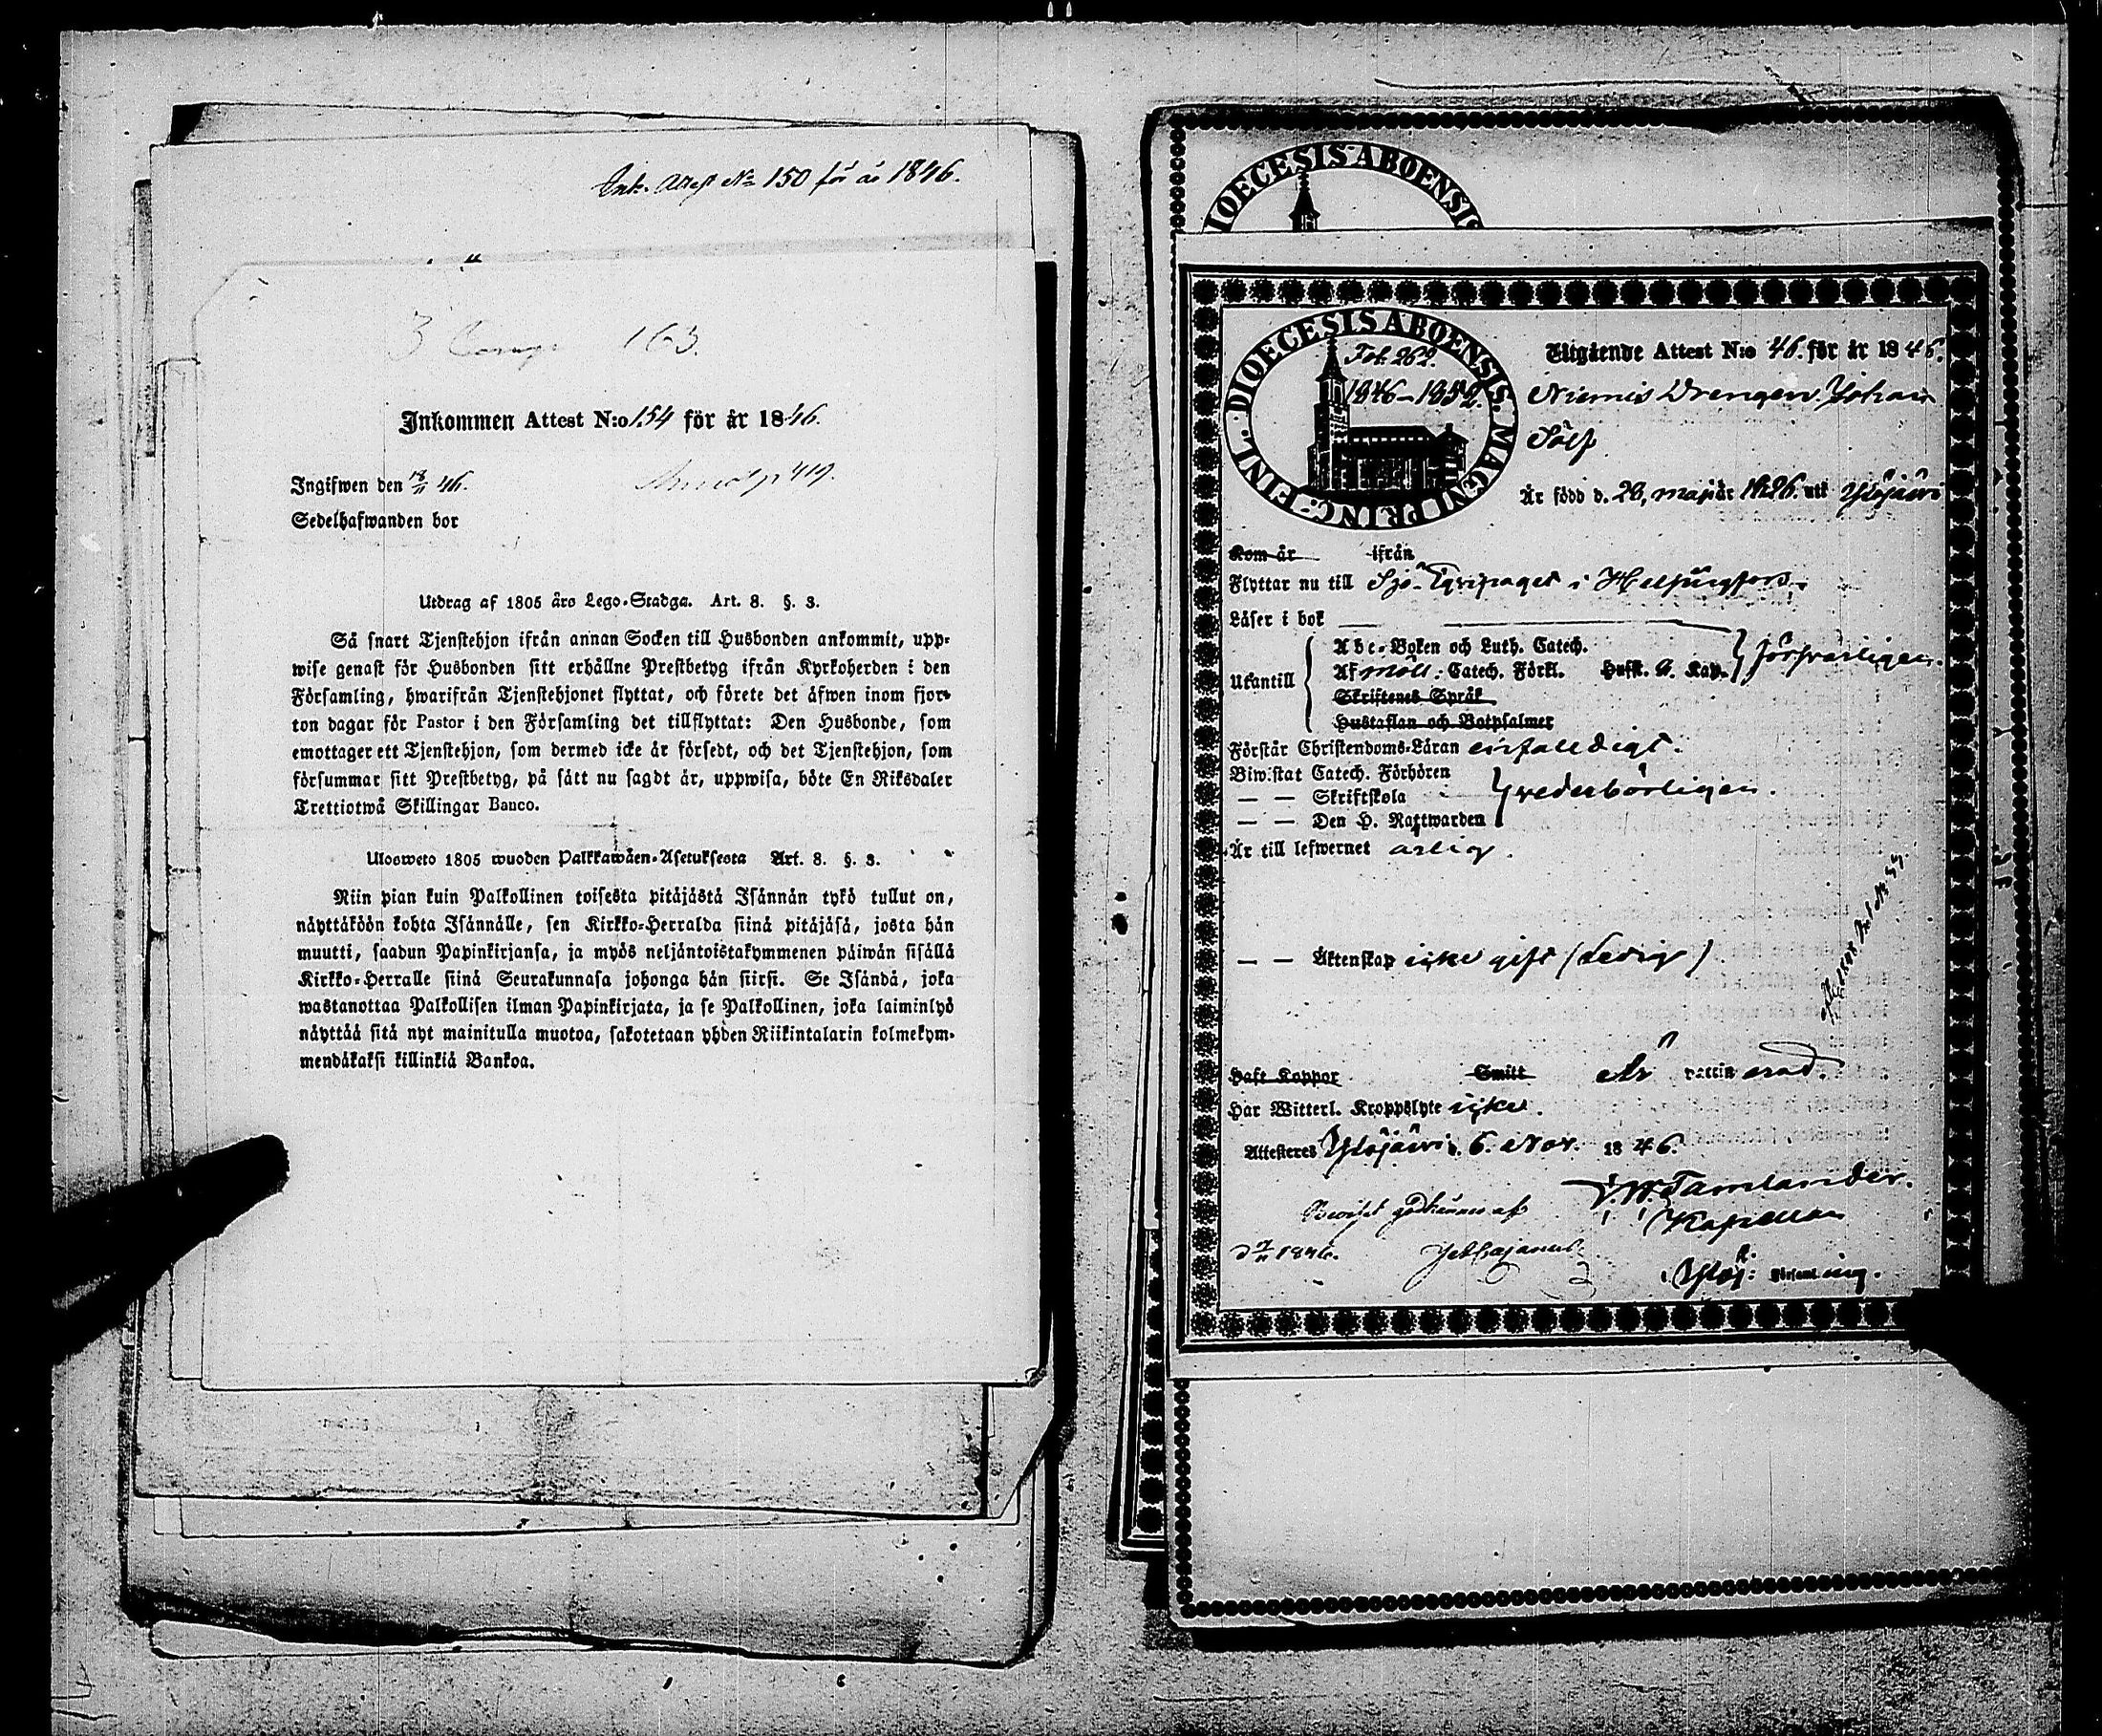 Ink. Attest No 150 för år 1846.
3 Comp 163.
Inkommen Attest N:o 154 för år 1846.
Ingifwen den 18/11 46.
419.
Sedelhafwanden bor
Utdrag af 1805 års Lego-Stadga. Art. 8. §. 3.
Så snart Tjenstehjon ifrån annan Socken till Husbonden ankommit, upp-
wise genast för Husbonden sitt erhållne Prestbetyg ifrån Kyrkoherden i den
Församling, hwarifrån Tjenstehjonet flyttat, och förete det äfwen inom fjor-
ton dagar för Pastor i den Församling det tillflyttat: Den Husbonde, som
emottager ett Tjenstehjon, som dermed icke är försedt, och det Tjenstehjon, som
försummar sitt Prestbetyg, på sätt nu sagdt är, uppwisa, böte En Riksdaler
Trettiotwå Skillingar Banco.
Ulosweto 1805 wuoden Palkkawäen-Asetuksesta Art. 8. §. 3.
Niin pian kuin Palkollinen toisesta pitäjästä Isännän tykö tullut on,
näyttäköön kohta Isännälle, sen Kirkko-Herralda siinä pitäjäsä, josta hän
muutti, saadun Papinkirjansa, ja myös neljäntoistakymmenen päiwän sisällä
Kirkko-Herralle siinä Seurakunnasa johonga hän siirsi. Se Isändä, joka
wastanottaa Palkollisen ilman Papinkirjata, ja se Palkollinen, joka laiminlyö
näyttää sitä nyt mainitulla muotoa, sakotetaan yhden Riikintalarin kolmekym-
mendäkaksi killinkiä Bankoa.
DIOECESIS ABOENSIS
DIOECESIS ABOENSIS. MAGNI PRINC: FINL.
Fol. 262.
1846–1852.
Utgående Attest N:o 46. för år 1846.
Niemis Drengen Johan
Sölf
Är född d. 20, maj år 1826. uti Ylöjärvi
Kom år ifrån
Flyttar nu till Sjö-Equipaget i Helsingfors.
Läser i bok
Utantill
Abc-Boken och Luth. Catech.
Af möll: Catech. Förkl. Hust. G. Kap.
försvarligen.
Skriftenes Språk
Hustaflan och Botpsalmer
Förstår Christendoms-Läran enfalldigt.
Biwistat Catech. Förhören
— — Skriftskola
vederbörligen.
— — Den H. Nattwarden
Är till lefwernet ärlig.
— — Äktenskap icke gift (Ledig)
Haft Koppor Smitt Är vaccinerad.
Har Witterl. Kroppslyte icke.
Attesteras Ylöjärvi. 6. Nov. 1846.
J. W. Tamlander.
Kapellan
Beviset godkännes af
d 7/11 1846. Cajanus
i Ylöj: Församling.